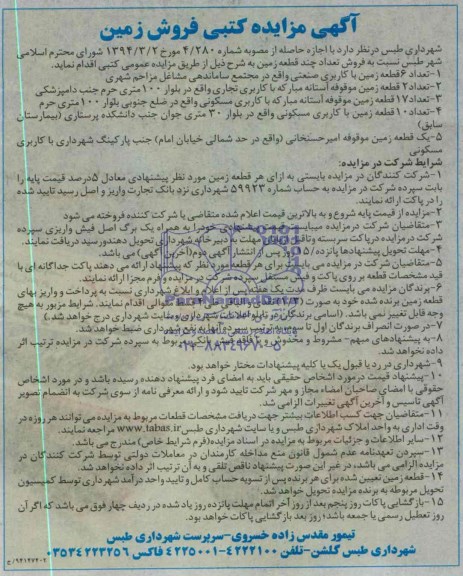 آگهی مزایده کتبی فروش زمین
شهرداری طبس در نظر دارد با اجازه حاصله از مصوبه شماره ۴/۲۸۰ مورخ ۱۳۹۴/۳/۲ شورای محترم اسلامی
شهر طبس نسبت به فروش تعداد چند قطعه زمین به شرح ذیل از طریق مزایده عمومی کتبی اقدام نماید.
۱-تعداد ۶ قطعه زمین با کاربری صنعتی واقع در مجتمع ساماندهی مشاغل مزاحم شهری
۲-تعداد ۷ قطعه زمین موقوفه آستانه مبارکه با کاربری تجاری واقع در بلوار ۱۰۰ متری حرم جنب دامپزشکی
۳-تعداد ۱۷ قطعه زمین موقوفه آستانه مبارکه با کاربری مسکونی واقع در ضلع جنوبی بلوار ۱۰۰ متری حرم
۴-تعداد ۱۰ قطعه زمین با کاربری مسکونی واقع در بلوار ۳۰ متری جوان جنب دانشکده پرستاری (بیمارستان
سابق)
۵-یک قطعه زمین موقوفه امیرحسنخانی (واقع در حد شمالی خیابان امام) جنب پارکینگ شهرداری با کاربری
مسکونی
شرایط شرکت در مزایده:
۱-شرکت کنندگان در مزایده بایستی به ازای هر قطعه زمین مورد نظر پیشنهادی معادل ۵ درصد قیمت پایه را
بابت سپرده شرکت در مزایده به حساب شماره ۵۹۹۲۳ شهرداری نزد بانک تجارت واریز و اصل رسید تایید شده
را در پاکت ارائه نمایند.
۲-مزایده از قیمت پایه شروع و به بالاترین قیمت اعلام شده متقاضی یا شرکت کننده فروخته می شود
۳-متقاضیان شرکت در مزایده پیشنهادی خود را به همراه یک برگ اصل فیش واریزی سپرده
شرکت در مزایده در پاکت سربسته مهلت به دبیرخانه شهرداری تحویل دهند و رسید دریافت نمایند.
۴-مهلت تحویل پیشنهادها پانزده/۱۵ روز پس از انتشار آگهی دوم (آخرین آگهی) می باشد.
۵-متقاضیان شرکت در مزایده می بایست برای هر قطعه مورد نظر که پیشنهاد ارائه می دهند پاکت جداگانه ای با
قید مشخصات قطعه بر روی پاکت و فیش مستقل سپرده شرکت در مزایده و فرم مجزا ارائه نمایند.
۶-برندگان مزایده می بایست ظرف مدت یک هفته پس از اعلام و ابلاغ شهرداری نسبت به پرداخت و واریز بهای
قطعه زمین برنده شده خود به صورت اقدام نمایند. شرایط مزبور به هیچ
وجه قابل تغییر نمی باشد. (اسامی برندگان در تابلو اعلانات شهرداری و سایت شهرداری درج خواهد شد.)
۷-در صورت انصراف برندگان اول تا سوم به ترتیب سپرده آنها به نفع شهرداری ضبط خواهد شد.
۸-به پیشنهادهای مبهم- مشروط و مخدوش و فاقد فیش بانکی مربوط به سپرده شرکت در مزایده ترتیب اثر
داده نخواهد شد.
۹-شهرداری در رد یا قبول یک یا کلیه پیشنهادات مختار خواهد بود.
۱۰-پیشنهاد قیمت در مورد اشخاص حقیقی باید به امضای فرد پیشنهاد دهنده رسیده باشد و در مورد اشخاص
حقوقی با امضای صاحبان امضاء مجاز و مهر شرکت تایید شود و ارائه معرفی نامه از سوی شرکت به انضمام تصویر
آگهی تاسیس و آخرین آگهی تغییرات الزامی است.
۱۱-متقاضیان جهت کسب اطلاعات بیشتر جهت دریافت مشخصات قطعات مربوط به مزایده می توانند هر روزه در
وقت اداری به واحد املاک شهرداری طبس و یا سایت شهرداری طبس www.tabas.ir مراجعه نمایند.
۱۲-سایر اطلاعات و جزئیات مربوط به مزایده در اسناد مزایده (فرم شرایط خاص) مندرج می باشد.
۱۳-سپردن تعهدنامه عدم شمول قانون منع مداخله کارمندان در معاملات دولتی توسط شرکت کنندگان در
مزایده الزامی می باشد، در غیر این صورت پیشنهاد ناقص تلقی و به آن ترتیب اثر داده نخواهد شد.
۱۴-قطعه زمین تعیین شده برای هر برنده پس از تسویه حساب کامل و تایید واحد درآمد شهرداری توسط کمیسیون
تحویل مربوطه به برنده مزایده تحویل خواهد شد.
۱۵-بازگشایی پاکات روز پنجم بعد از روز آخر اتمام مهلت پانزده روز یاد شده در ردیف چهار فوق می باشد که اگر آن
روز تعطیل رسمی یا جمعه باشد؛ روز بعد بازگشایی پاکات خواهد بود.
تیمور مقدس زاده خسروی-سرپرست شهرداری طبس
شهرداری طبس گلشن-تلفن ۴۲۲۲۱۰۰-۴۲۲۵۰۰۱ فاکس ۰۳۵۳۴۲۲۳۲۵۶